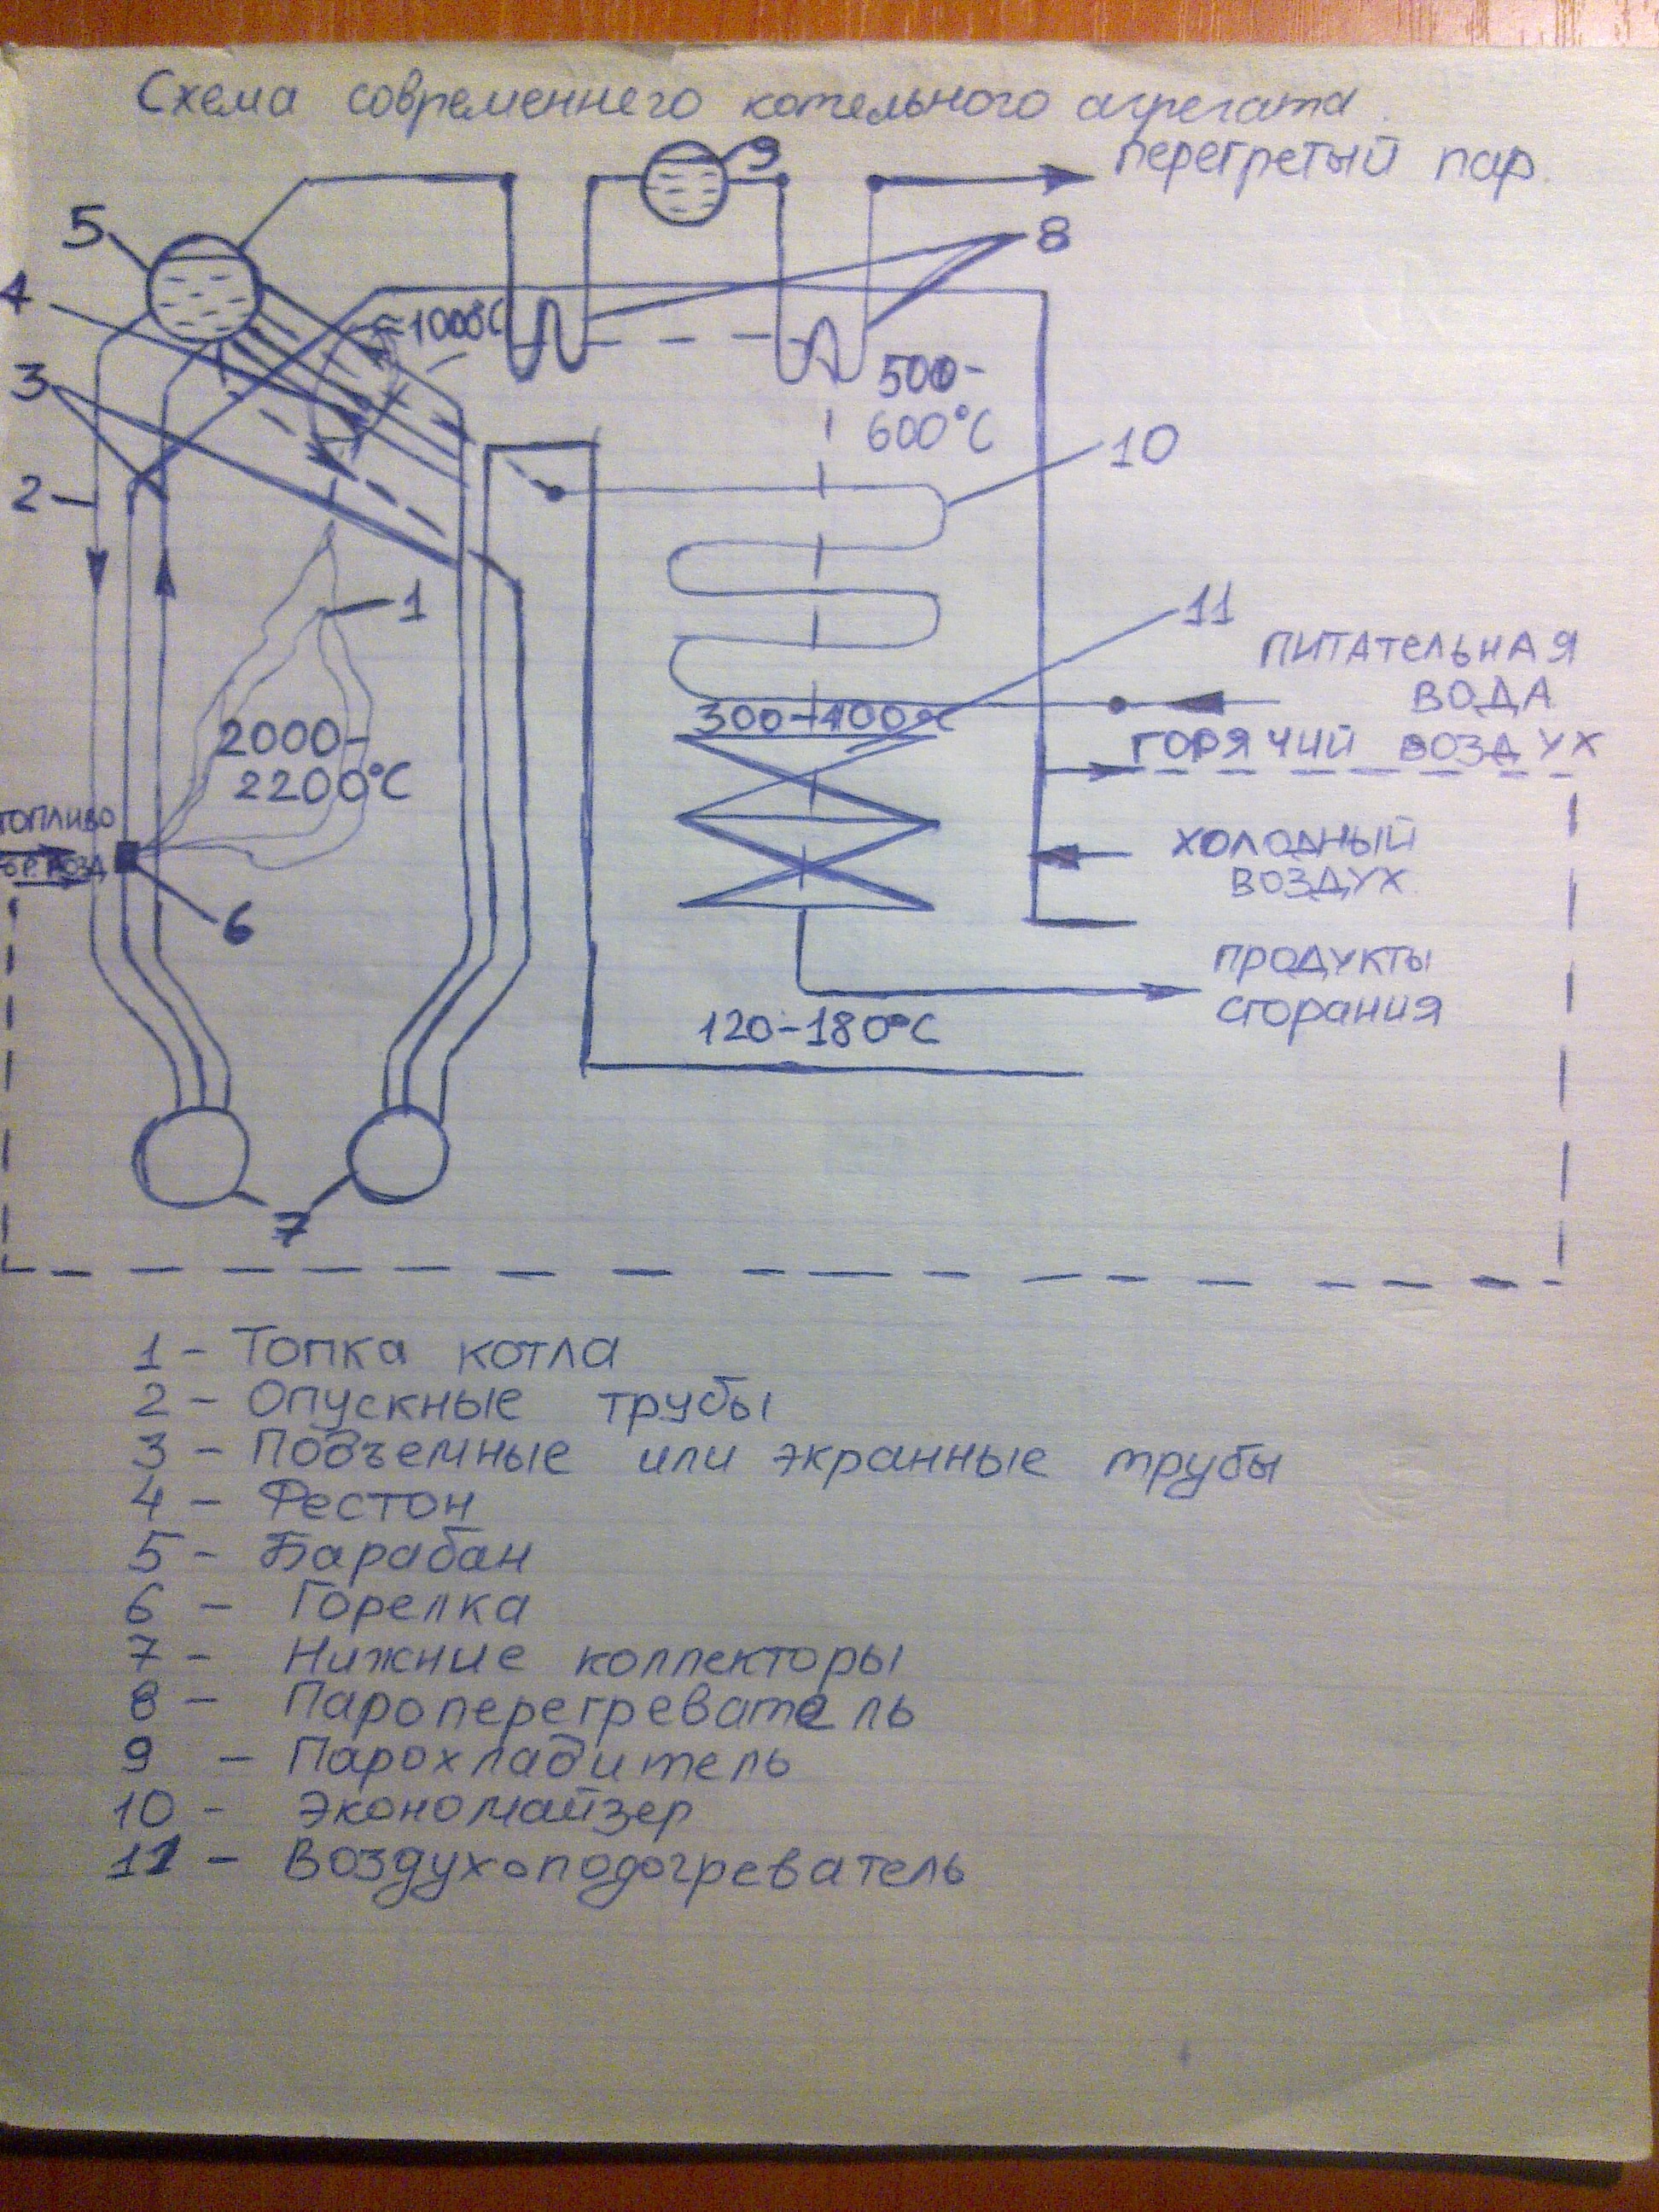 Схема современнего котельного агрегата.
перегретый пар.
9
5
8
4
≈1000°С
3
500-
600°С
10
2
1
11
ПИТАТЕЛЬНАЯ
ВОДА
300-400°С
ГОРЯЧИЙ ВОЗДУХ
2000-
2200°С
ТОПЛИВО
ХОЛОДНЫЙ
ВОЗДУХ
6
ПРОДУКТЫ
сгорания
120-180°С
7
1 - Топка котла
2 - Опускные трубы
3 - Подъемные или экранные трубы
4 - Фестон
5 - Барабан
6 - Горелка
7 - Нижние коллекторы
8 - Пароперегреватель
9 - Парохладитель
10 - Экономайзер
11 - Воздухоподогреватель